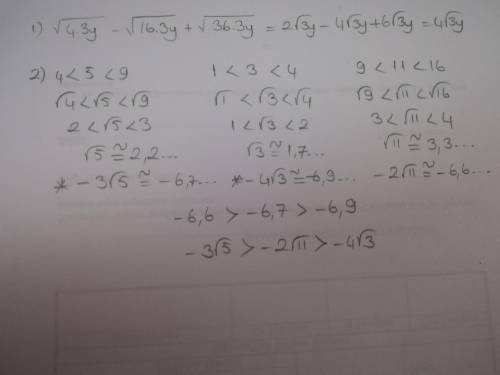 1) √4.3y - √16.3y + √36.3y = 2√3y - 4√3y + 6√3y = 4√3y
2) 4 < 5 < 9 1 < 3 < 4 9 < 11 < 16
√4 < √5 < √9 √1 < √3 < √4 √9 < √11 < √16
2 < √5 < 3 1 < √3 < 2 3 < √11 < 4
√5 ≅ 2,2... √3 ≅ 1,7... √11 ≅ 3,3...
* -3√5 ≅ -6,7... * -4√3 ≅ -6,9... -2√11 ≅ -6,6...
-6,6 > -6,7 > -6,9
-3√5 > -2√11 > -4√3